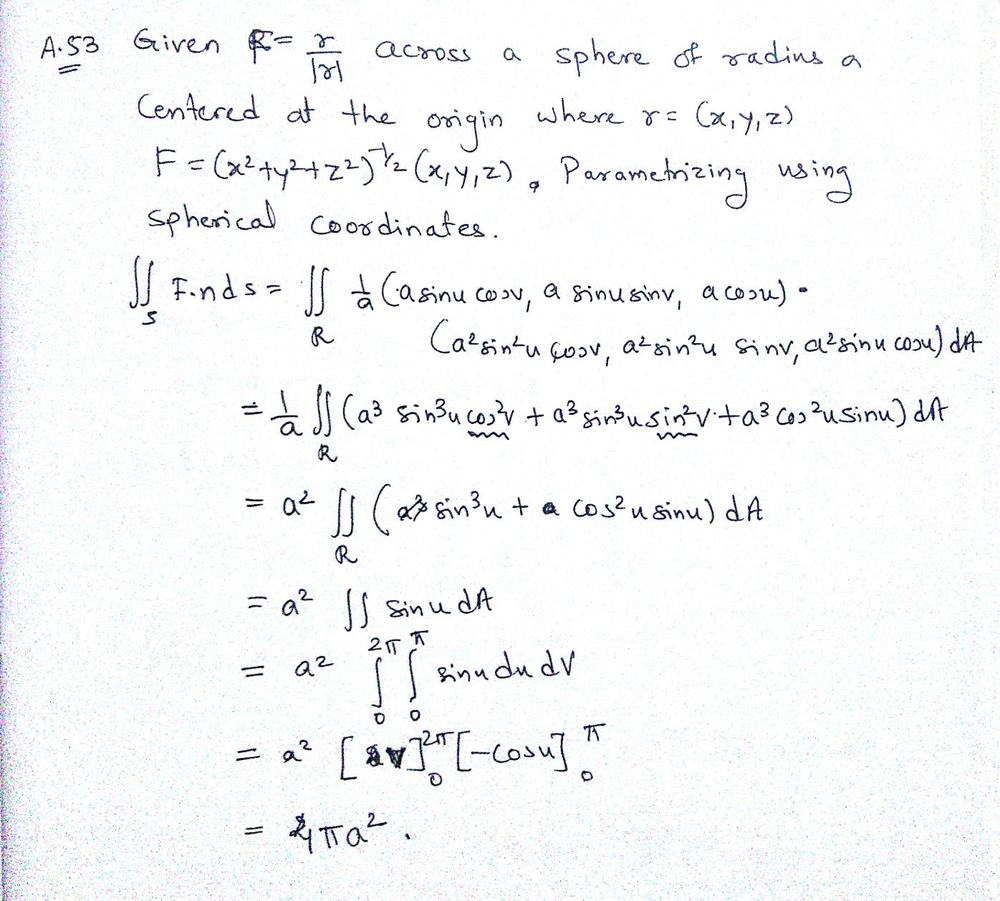 A.53 Given F = r/|r| across a sphere of radius a
Centered at the origin where r = (x, y, z)
F = (x²+y²+z²)^-1/2 (x, y, z), Parametrizing using
spherical coordinates.
∬_S F.nds = ∬_R 1/a (a sinu cosv, a sinu sinv, a cosu) •
(a²sin²u cosv, a²sin²u sinv, a²sinu cosu) dA
= 1/a ∬_R (a³ sin³u cos²v + a³ sin³u sin²v + a³ cos²u sinu) dA
= a² ∬_R ( sin³u + cos²u sinu) dA
= a² ∬ sinu dA
= a² ∫_0^2π ∫_0^π sinu du dv
= a² [v]_0^2π [-cosu]_0^π
= 4πa².